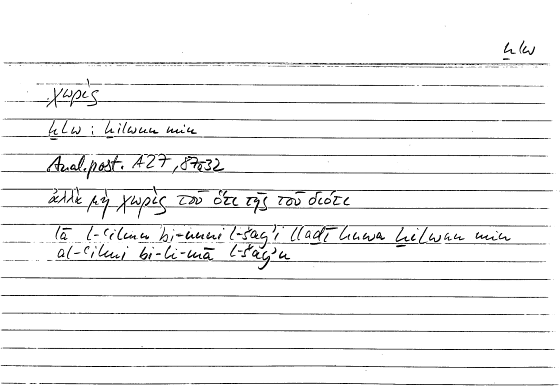 h̲lw
χωρίς
h̲lw : h̲ilwun min
Anal. post. A27, 87a32
ἀλλὰ μὴ χωρὶς τοῦ ὅτι τῆς τοῦ διότι
lā l-ʿilmu bi-anni l-šayʾi llad̲ī huwa h̲ilwun min
al-ʿilmi bi-li-mā l-šayʾu